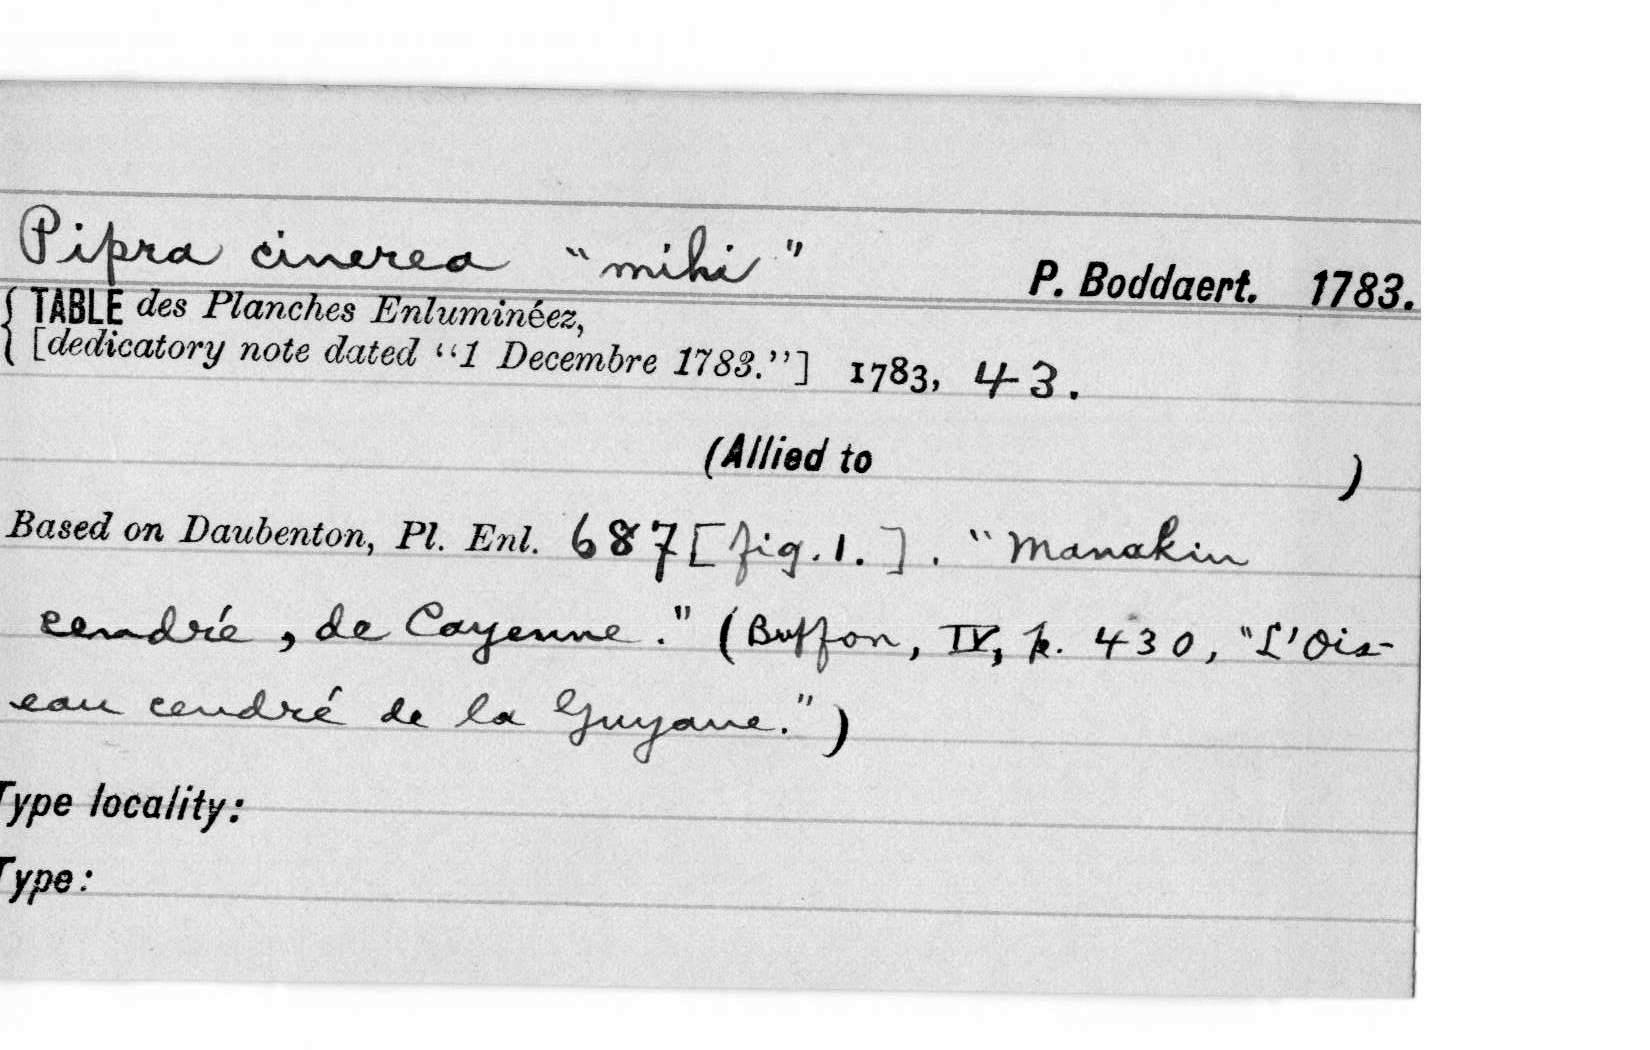 Pipra cinerea "mihi" P. Boddaert. 1783.
{ TABLE des Planches Enluminéez,
[dedicatory note dated "1 Decembre 1783."] 1783, 43.
(Allied to )
Based on Daubenton, Pl. Enl. 687 [fig. 1.]. "Manakin
cendrée, de Cayenne." (Buffon, IV, p. 430, "L'Ois-
eau cendré de la Guyane.")
Type locality:
Type: